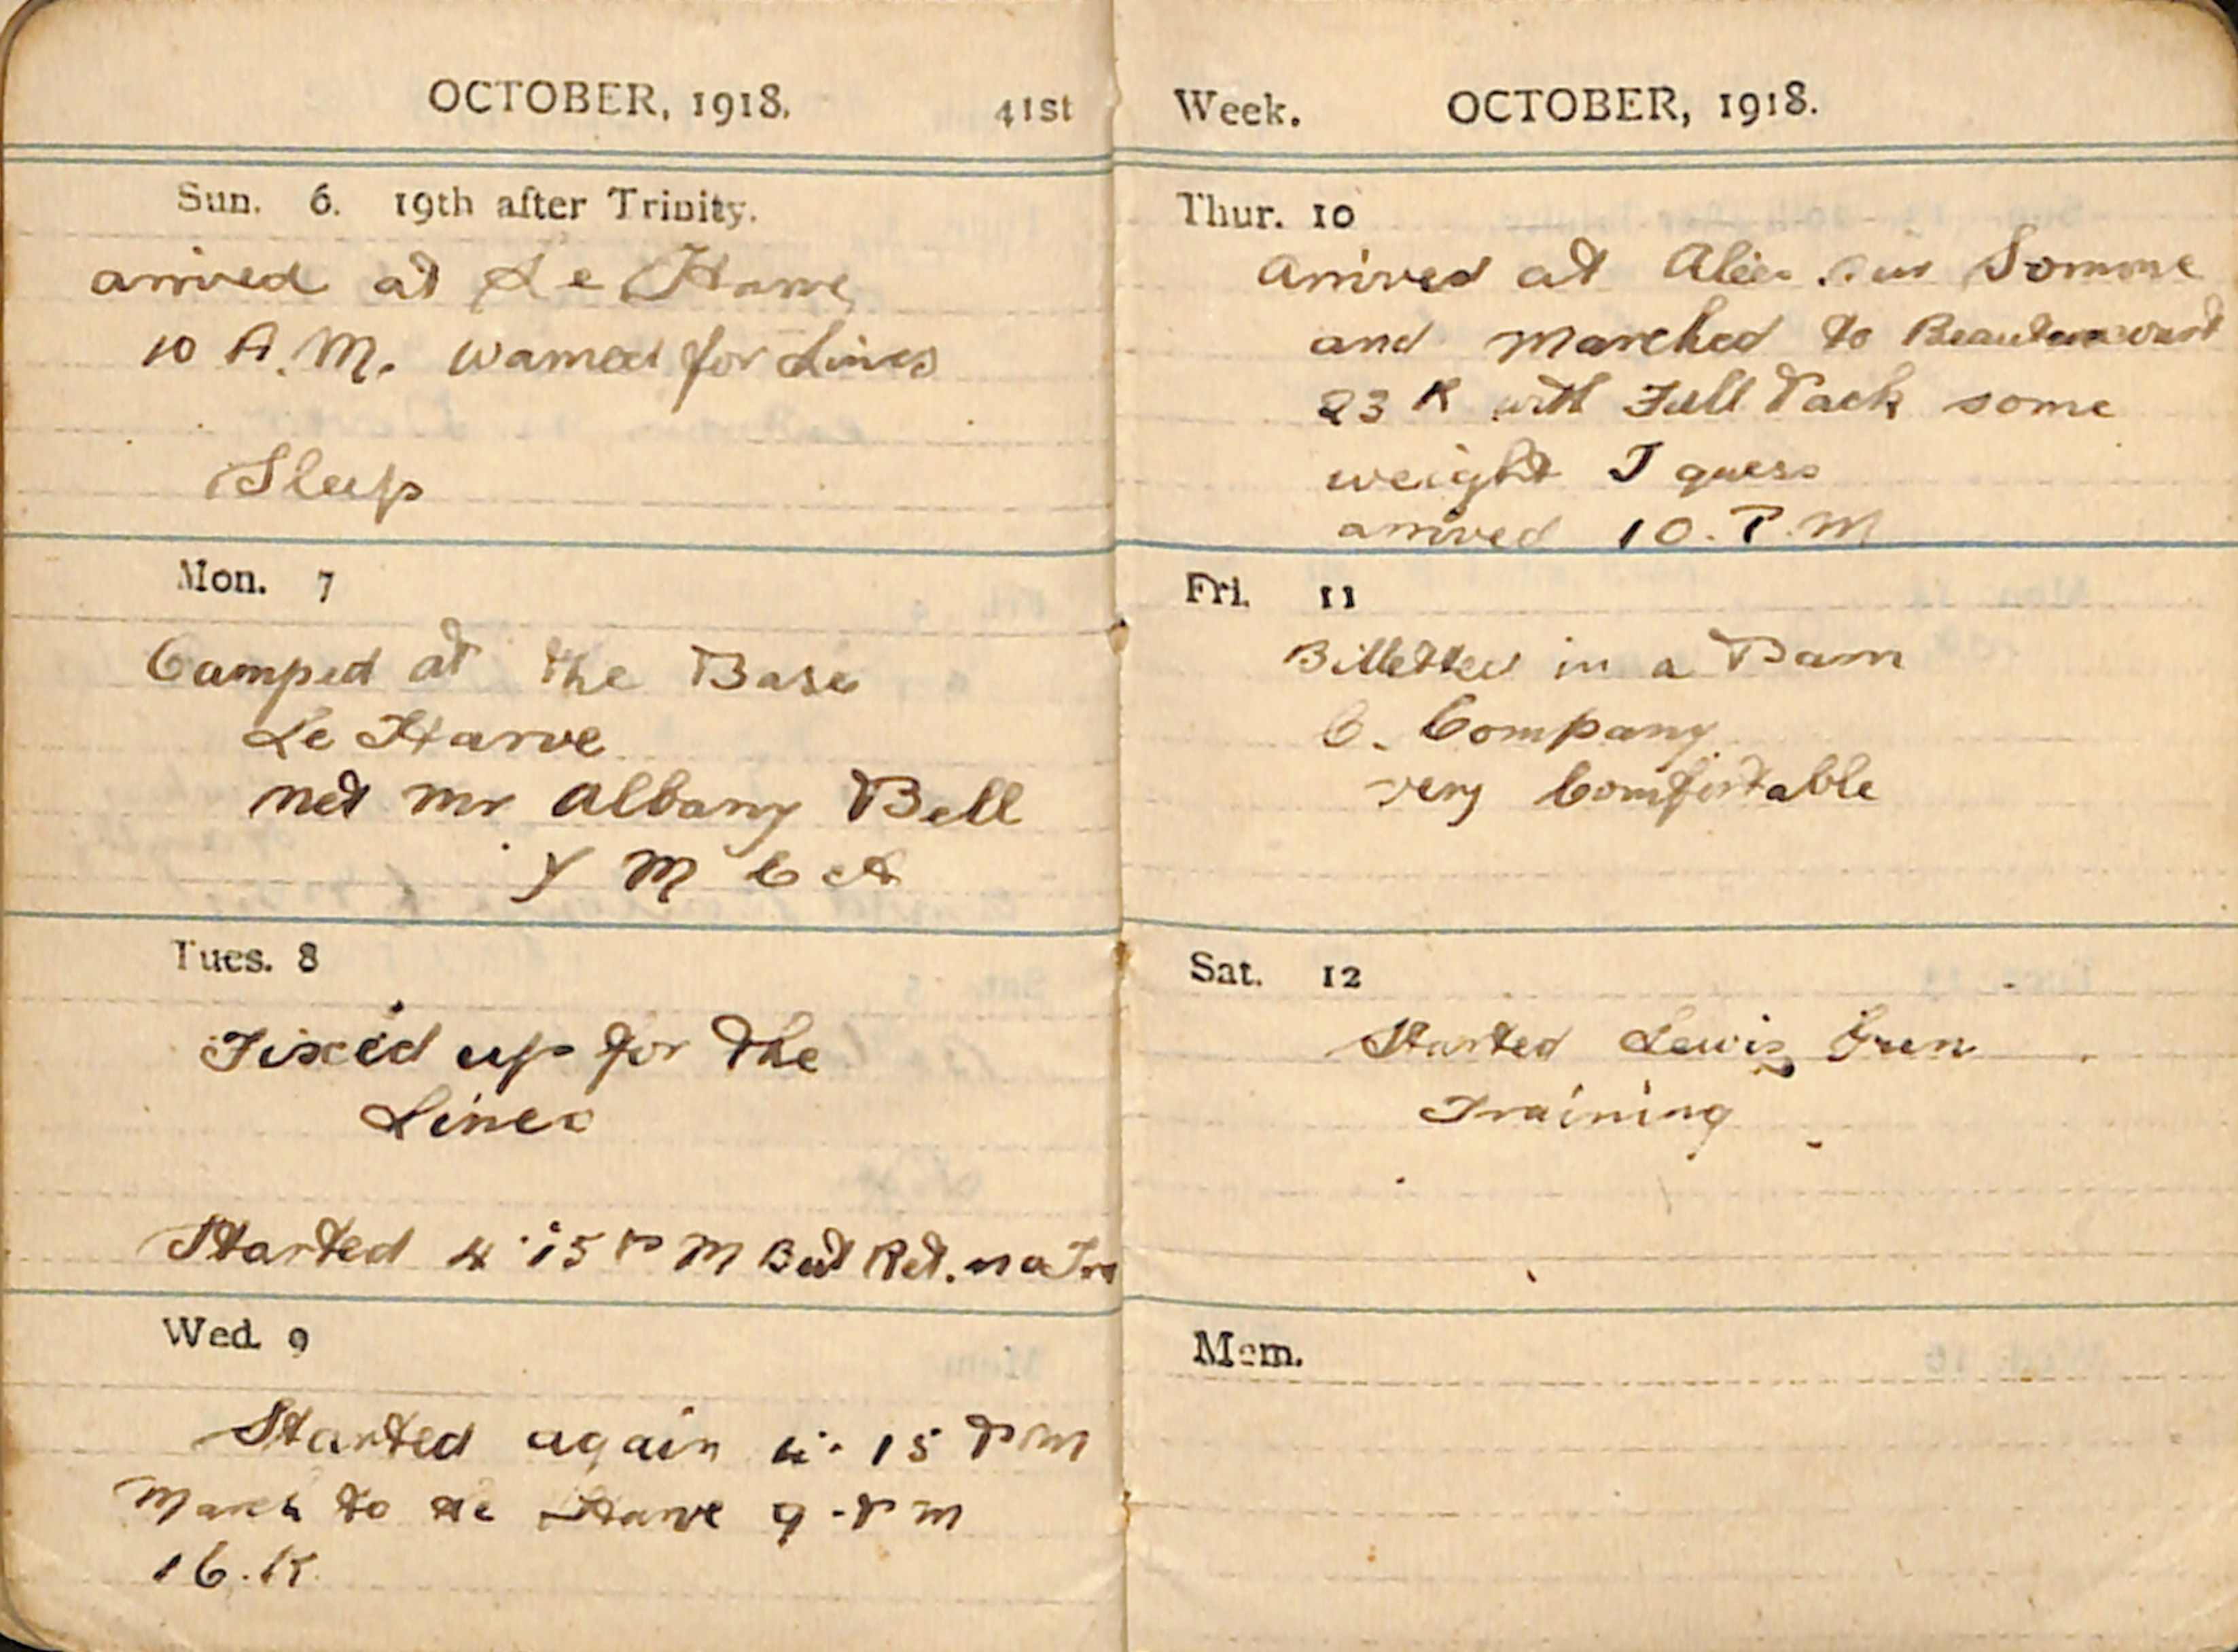 OCTOBER, 1918. 41st
Sun. 6. 19th after Trinity.
arrived at Le Harve
10 A.M. warned for Lines
Sleep
Mon. 7
Camped at the Base
Le Harve
met mr Albany Bell
Y M C A
Tues. 8
Fixed up for the
Lines
Started 4.15 P M But Ret. no Tra
Wed. 9
Started again 4.15 P M
March to Harve 9.P m
16.K.
Week. OCTOBER, 1918.
Thur. 10
Arrived at sur Somme
and marched to
23 K with Full Pack some
weight I guess
arrived 10.P.M
Fri. 11
Billetted in a Barn
C. Company
very Comfortable
Sat. 12
Started Lewis Gun
Training
Mem.